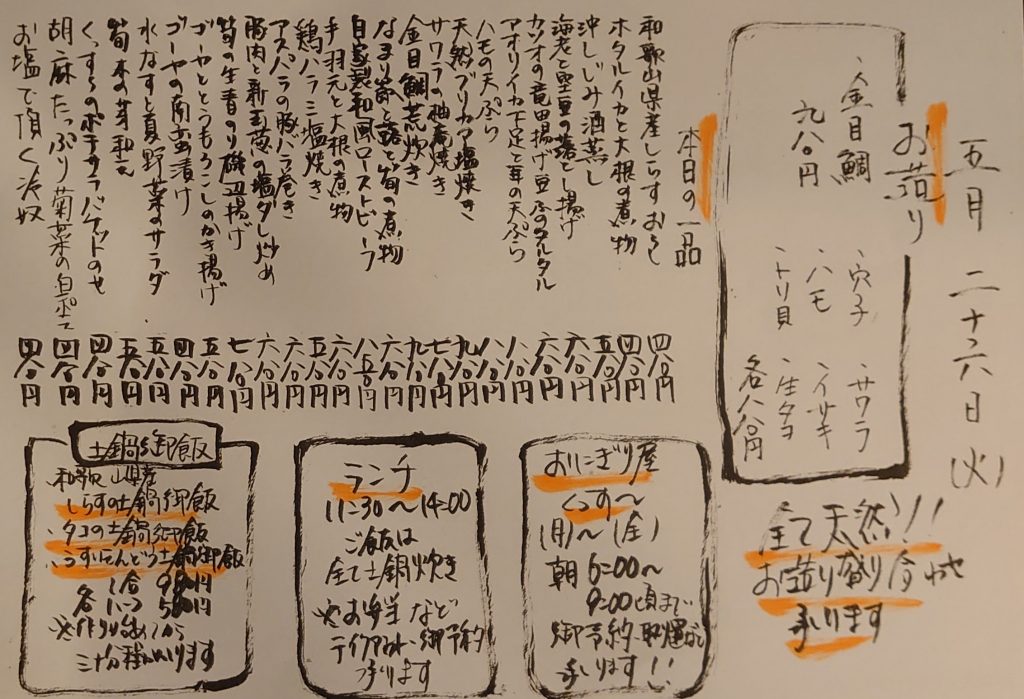 五月二十六日(火)
お造り
、金目鯛
九八〇円
、穴子
、ハモ
、トリ貝
、サワラ
、イサキ
、生タコ
各八八〇円
全て天然!!
お造り盛り合わせ
承ります
本日の一品
和歌山県産しらすおろし 四八〇円
ホタルイカと大根の煮物 四八〇円
沖しじみ酒蒸し 五八〇円
海老と空豆の落とし揚げ 六八〇円
カツオの竜田揚げ 豆腐のタルタル 六八〇円
アオリイカ下足と茸の天ぷら 八八〇円
ハモの天ぷら 八八〇円
天然ブリカマ塩焼き 九八〇円
サワラの柚庵焼き 七八〇円
金目鯛荒炊き 九八〇円
なまり節と蕗と筍の煮物 六八〇円
自家製和風ローストビーフ 八五〇円
手羽元と大根の煮物 六八〇円
鶏ハラミ塩焼き 五八〇円
アスパラの豚バラ巻き 六八〇円
豚肉と新玉葱の塩ダレ炒め 六八〇円
筍の生青のり磯辺揚げ 七八〇円
ゴーヤととうもろこしのかき揚げ 五八〇円
ゴーヤの南蛮漬け 四八〇円
水なすと夏野菜のサラダ 五八〇円
筍木の芽和え 五八〇円
くっすのポテサラバゲットのせ 四八〇円
胡麻たっぷり菊菜の白和え 四八〇円
お塩で頂く冷奴 四八〇円
おにぎり屋
くっす〜
(月)〜(金)
朝6:00〜
9:00頃まで
御予約、取置など
承ります!!
ランチ
11:30〜14:00
ご飯は
全て土鍋炊き
※お弁当など
テイクアウト御予約
承ります
土鍋御飯
和歌山県産
しらすの土鍋御飯
、タコの土鍋御飯
、うすいえんどう土鍋御飯
1合 980円
各 い
580円
三十分程かかります